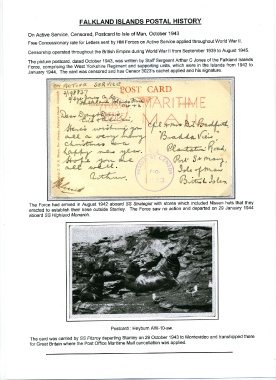 FALKLAND ISLANDS POSTAL HISTORY
On Active Service, Censored, Postcard to Isle of Man, October 1943
Free Concessionary rate for Letters sent by HM Forces on Active Service applied throughout World War II.
Censorship operated throughout the British Empire during World War II from September 1939 to August 1945.
The picture postcard, dated October 1943, was written by Staff Sergeant Arthur C Jones of the Falkland Islands
Force, comprising the West Yorkshire Regiment and supporting units, which were in the Islands from 1942 to
January 1944. The card was censored and has Censor 3023's cachet applied and his signature.
ON ACTIVE SERVICE
POST CARD
MARITIME
MAIL
Here wishing you
all a very happy
Christmas and a
happy new year.
Hope you are
all well.
Arthur
Bradda View
Plantation Road,
Port St Mary,
Isle of Man
British Isles
The Force had arrived in August 1942 aboard SS Strategist with stores which included Nissen huts that they
erected to establish their base outside Stanley. The Force saw no action and departed on 29 January 1944
aboard SS Highland Monarch.
Postcard : Heyburn
The card was carried by SS Fitzroy departing Stanley on 29 October 1943 to Montevideo and transhipped there
for Great Britain where the Post Office Maritime Mail cancellation was applied.